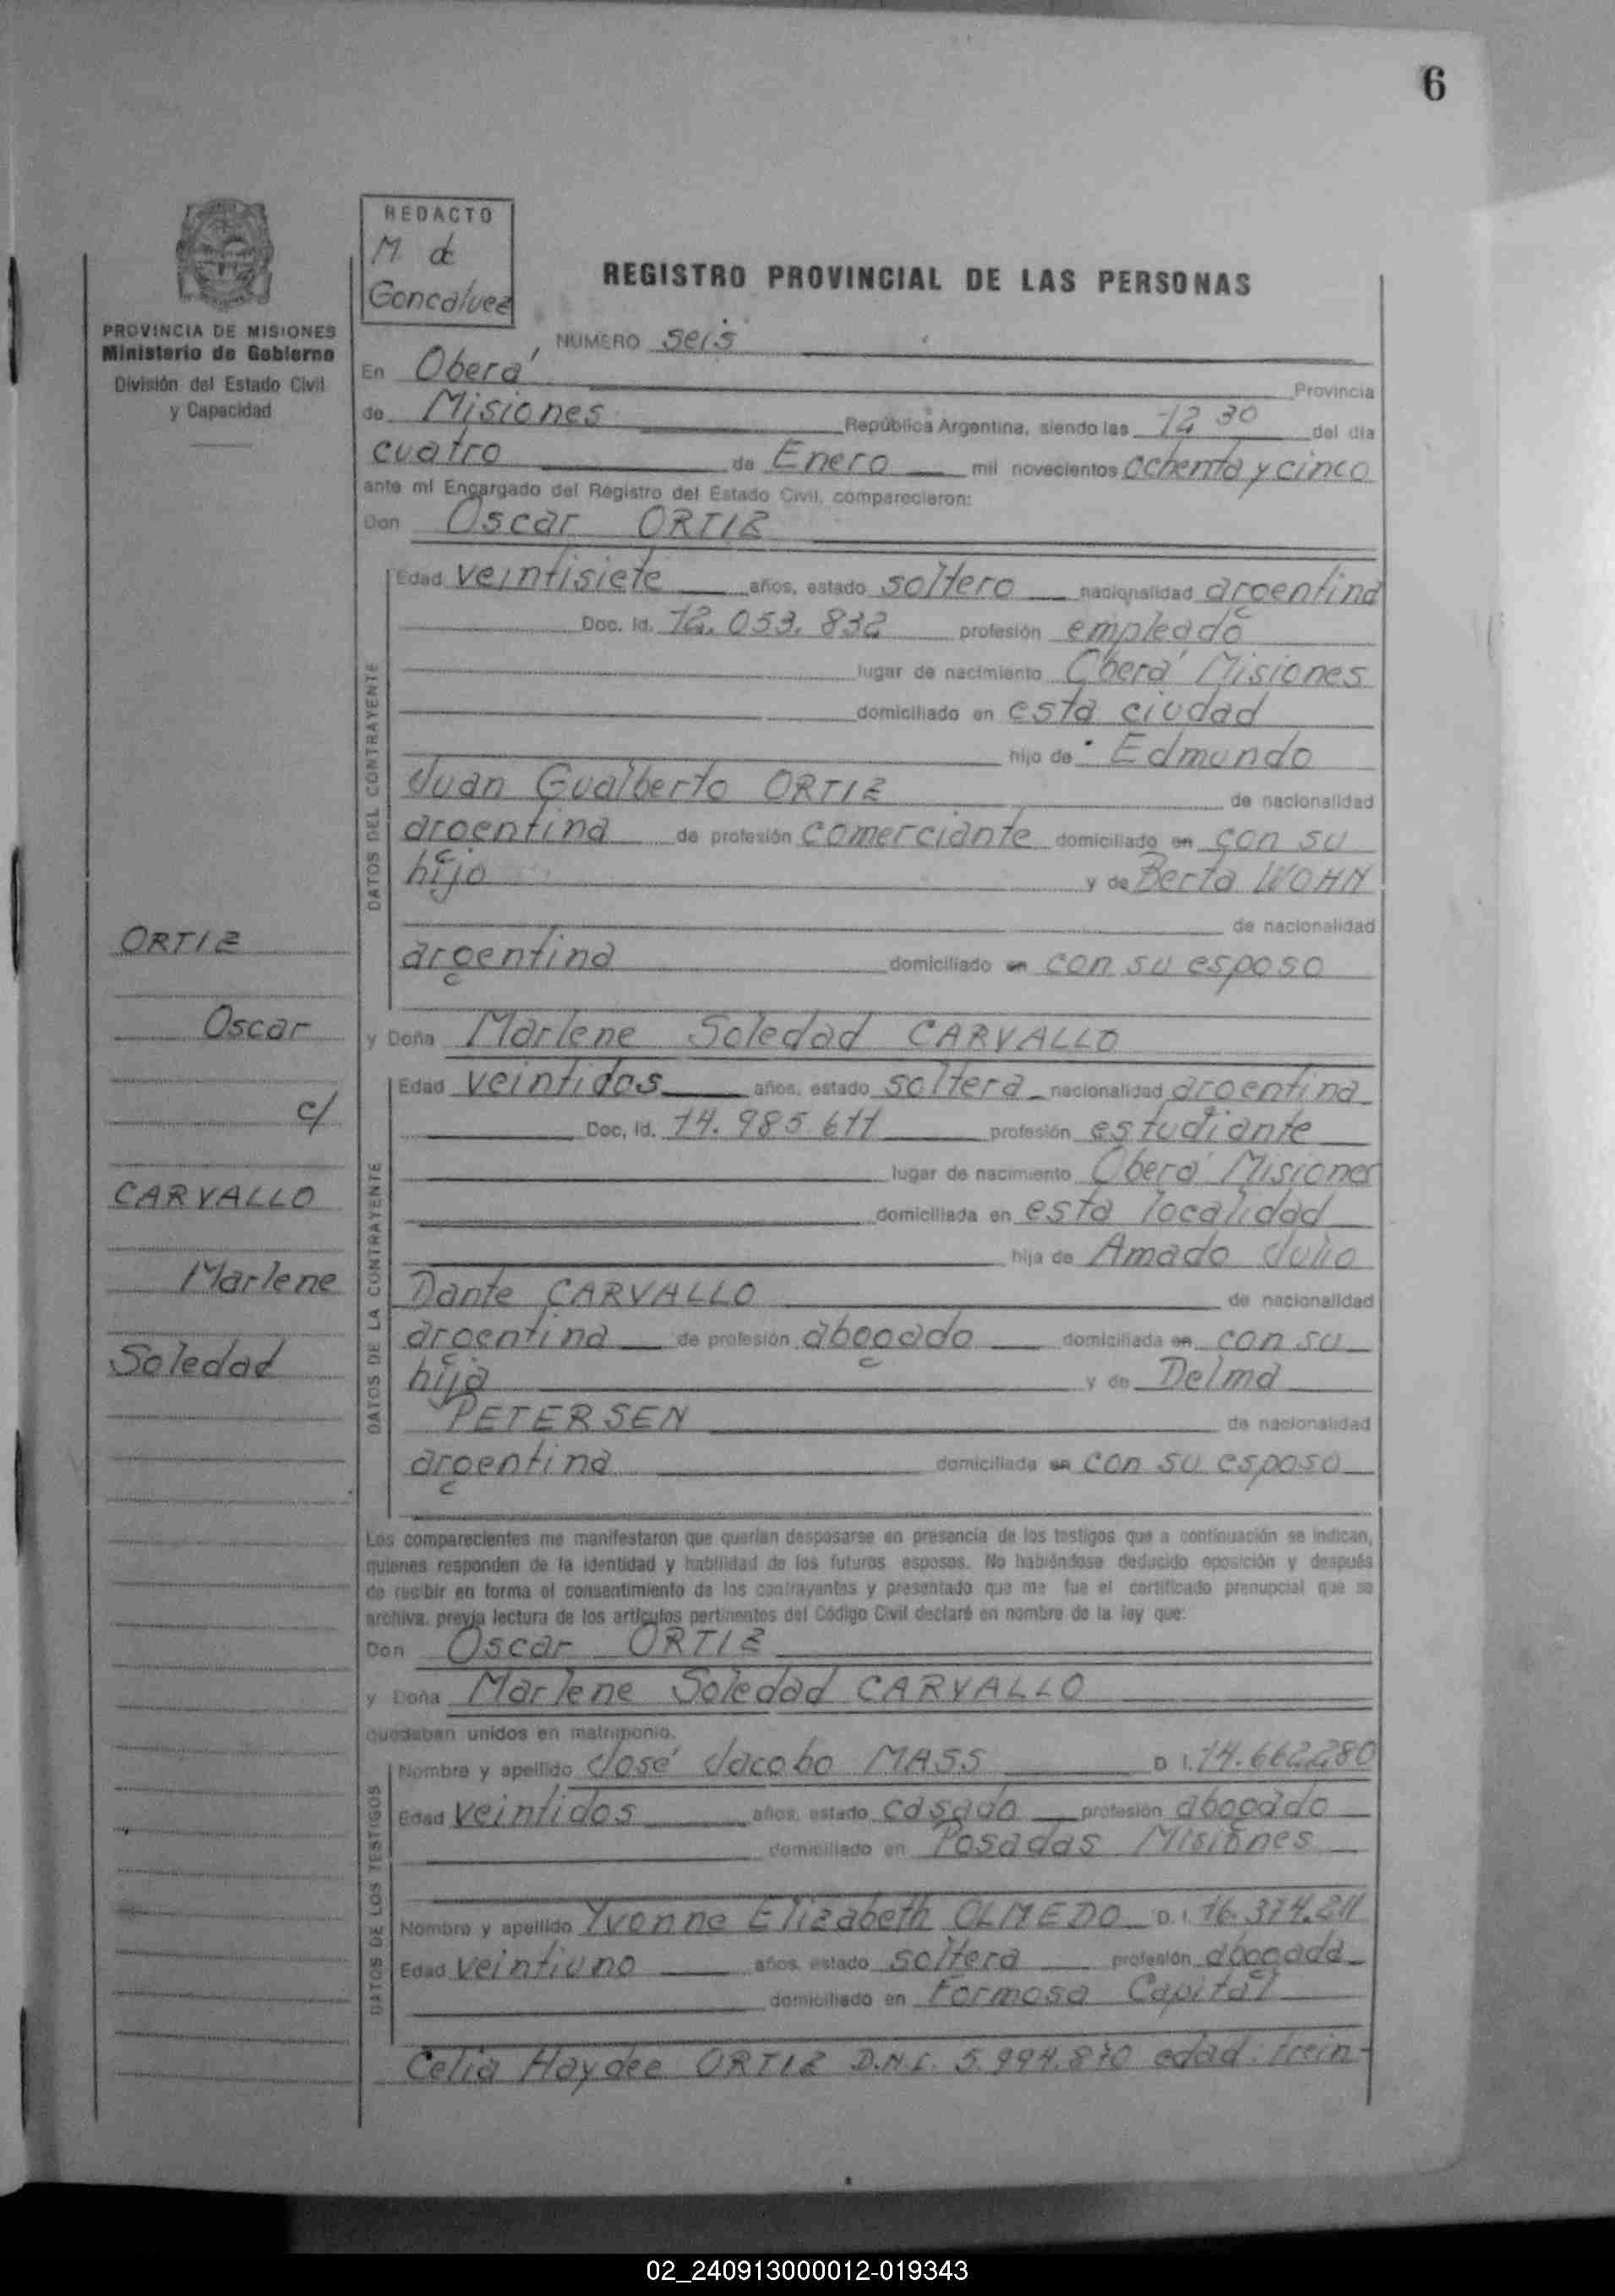 6
REDACTO
M. de
Goncalvez
REGISTRO PROVINCIAL DE LAS PERSONAS
PROVINCIA DE MISIONES
Ministerio de Gobierno
División del Estado Civil
y Capacidad
NUMERO seis
En Oberá Provincia
de Misiones República Argentina, siendo las 12 30 del día
cuatro de Enero mil novecientos ochenta y cinco
ante mí Encargado del Registro del Estado Civil, comparecieron:
Don Oscar ORTIZ
DATOS DEL CONTRAYENTE
Edad veintisiete años, estado soltero nacionalidad argentina
Doc. Id. 12.053.832 profesión empleado
lugar de nacimiento Oberá Misiones
domiciliado en esta ciudad
hijo de Edmundo
Juan Gualberto ORTIZ de nacionalidad
argentina de profesión comerciante domiciliado en con su
hijo y de Berta WOHN
de nacionalidad
argentina domiciliado en con su esposo
y Doña Marlene Soledad CARVALLO
DATOS DE LA CONTRAYENTE
Edad veintidos años, estado soltera nacionalidad argentina
Doc. Id. 14.985.611 profesión estudiante
lugar de nacimiento Oberá Misiones
domiciliada en esta localidad
hija de Amado Julio
Dante CARVALLO de nacionalidad
argentina de profesión abogado domiciliada en con su
hija y de Delma
PETERSEN de nacionalidad
argentina domiciliada en con su esposo
ORTIZ
Oscar
c/
CARVALLO
Marlene
Soledad
Los comparecientes me manifestaron que querían desposarse en presencia de los testigos que a continuación se indican,
quienes responden de la identidad y habilidad de los futuros esposos. No habiéndose deducido oposición y después
de recibir en forma el consentimiento de los contrayentes y presentado que me fue el certificado prenupcial que se
archiva, previa lectura de los artículos pertinentes del Código Civil declaré en nombre de la ley que:
Don Oscar ORTIZ
y Doña Marlene Soledad CARVALLO
quedaban unidos en matrimonio.
DATOS DE LOS TESTIGOS
Nombre y apellido José Jacobo MASS D. I. 14.662.280
Edad veintidos años, estado casado profesión abogado
domiciliado en Posadas Misiones
Nombre y apellido Yvonne Elizabeth OLMEDO D. I. 16.374.211
Edad veintiuno años, estado soltera profesión abogada
domiciliado en Formosa Capital
Celia Haydee ORTIZ D.N.I. 5.994.870 edad: trein-
02_240913000012-019343